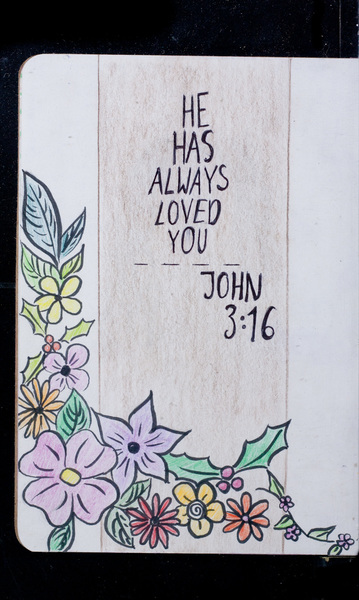 HE
HAS
ALWAYS
LOVED
YOU
JOHN
3:16